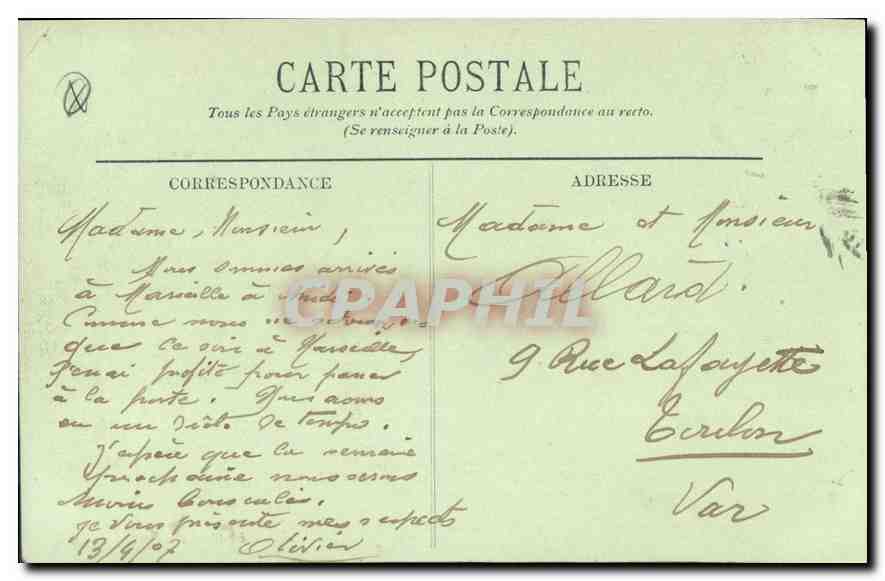 CARTE POSTALE
Tous les Pays étrangers n'acceptent pas la Correspondance au recto.
(Se renseigner à la Poste).
CORRESPONDANCE
Madame, Monsieur,
Nous sommes arrivés
à Marseille à midi.
Comme nous ne
que ce soir à Marseille,
j'en ai profité pour passer
à la poste. Nous avons
eu un de temps.
J'espère que la semaine
prochaine nous serons
moins bousculés.
Je vous présente mes respects
13/4/07 Olivier
ADRESSE
Madame et Monsieur
Allard.
9 Rue Lafayette
Toulon
Var
CPAPHIL.COM